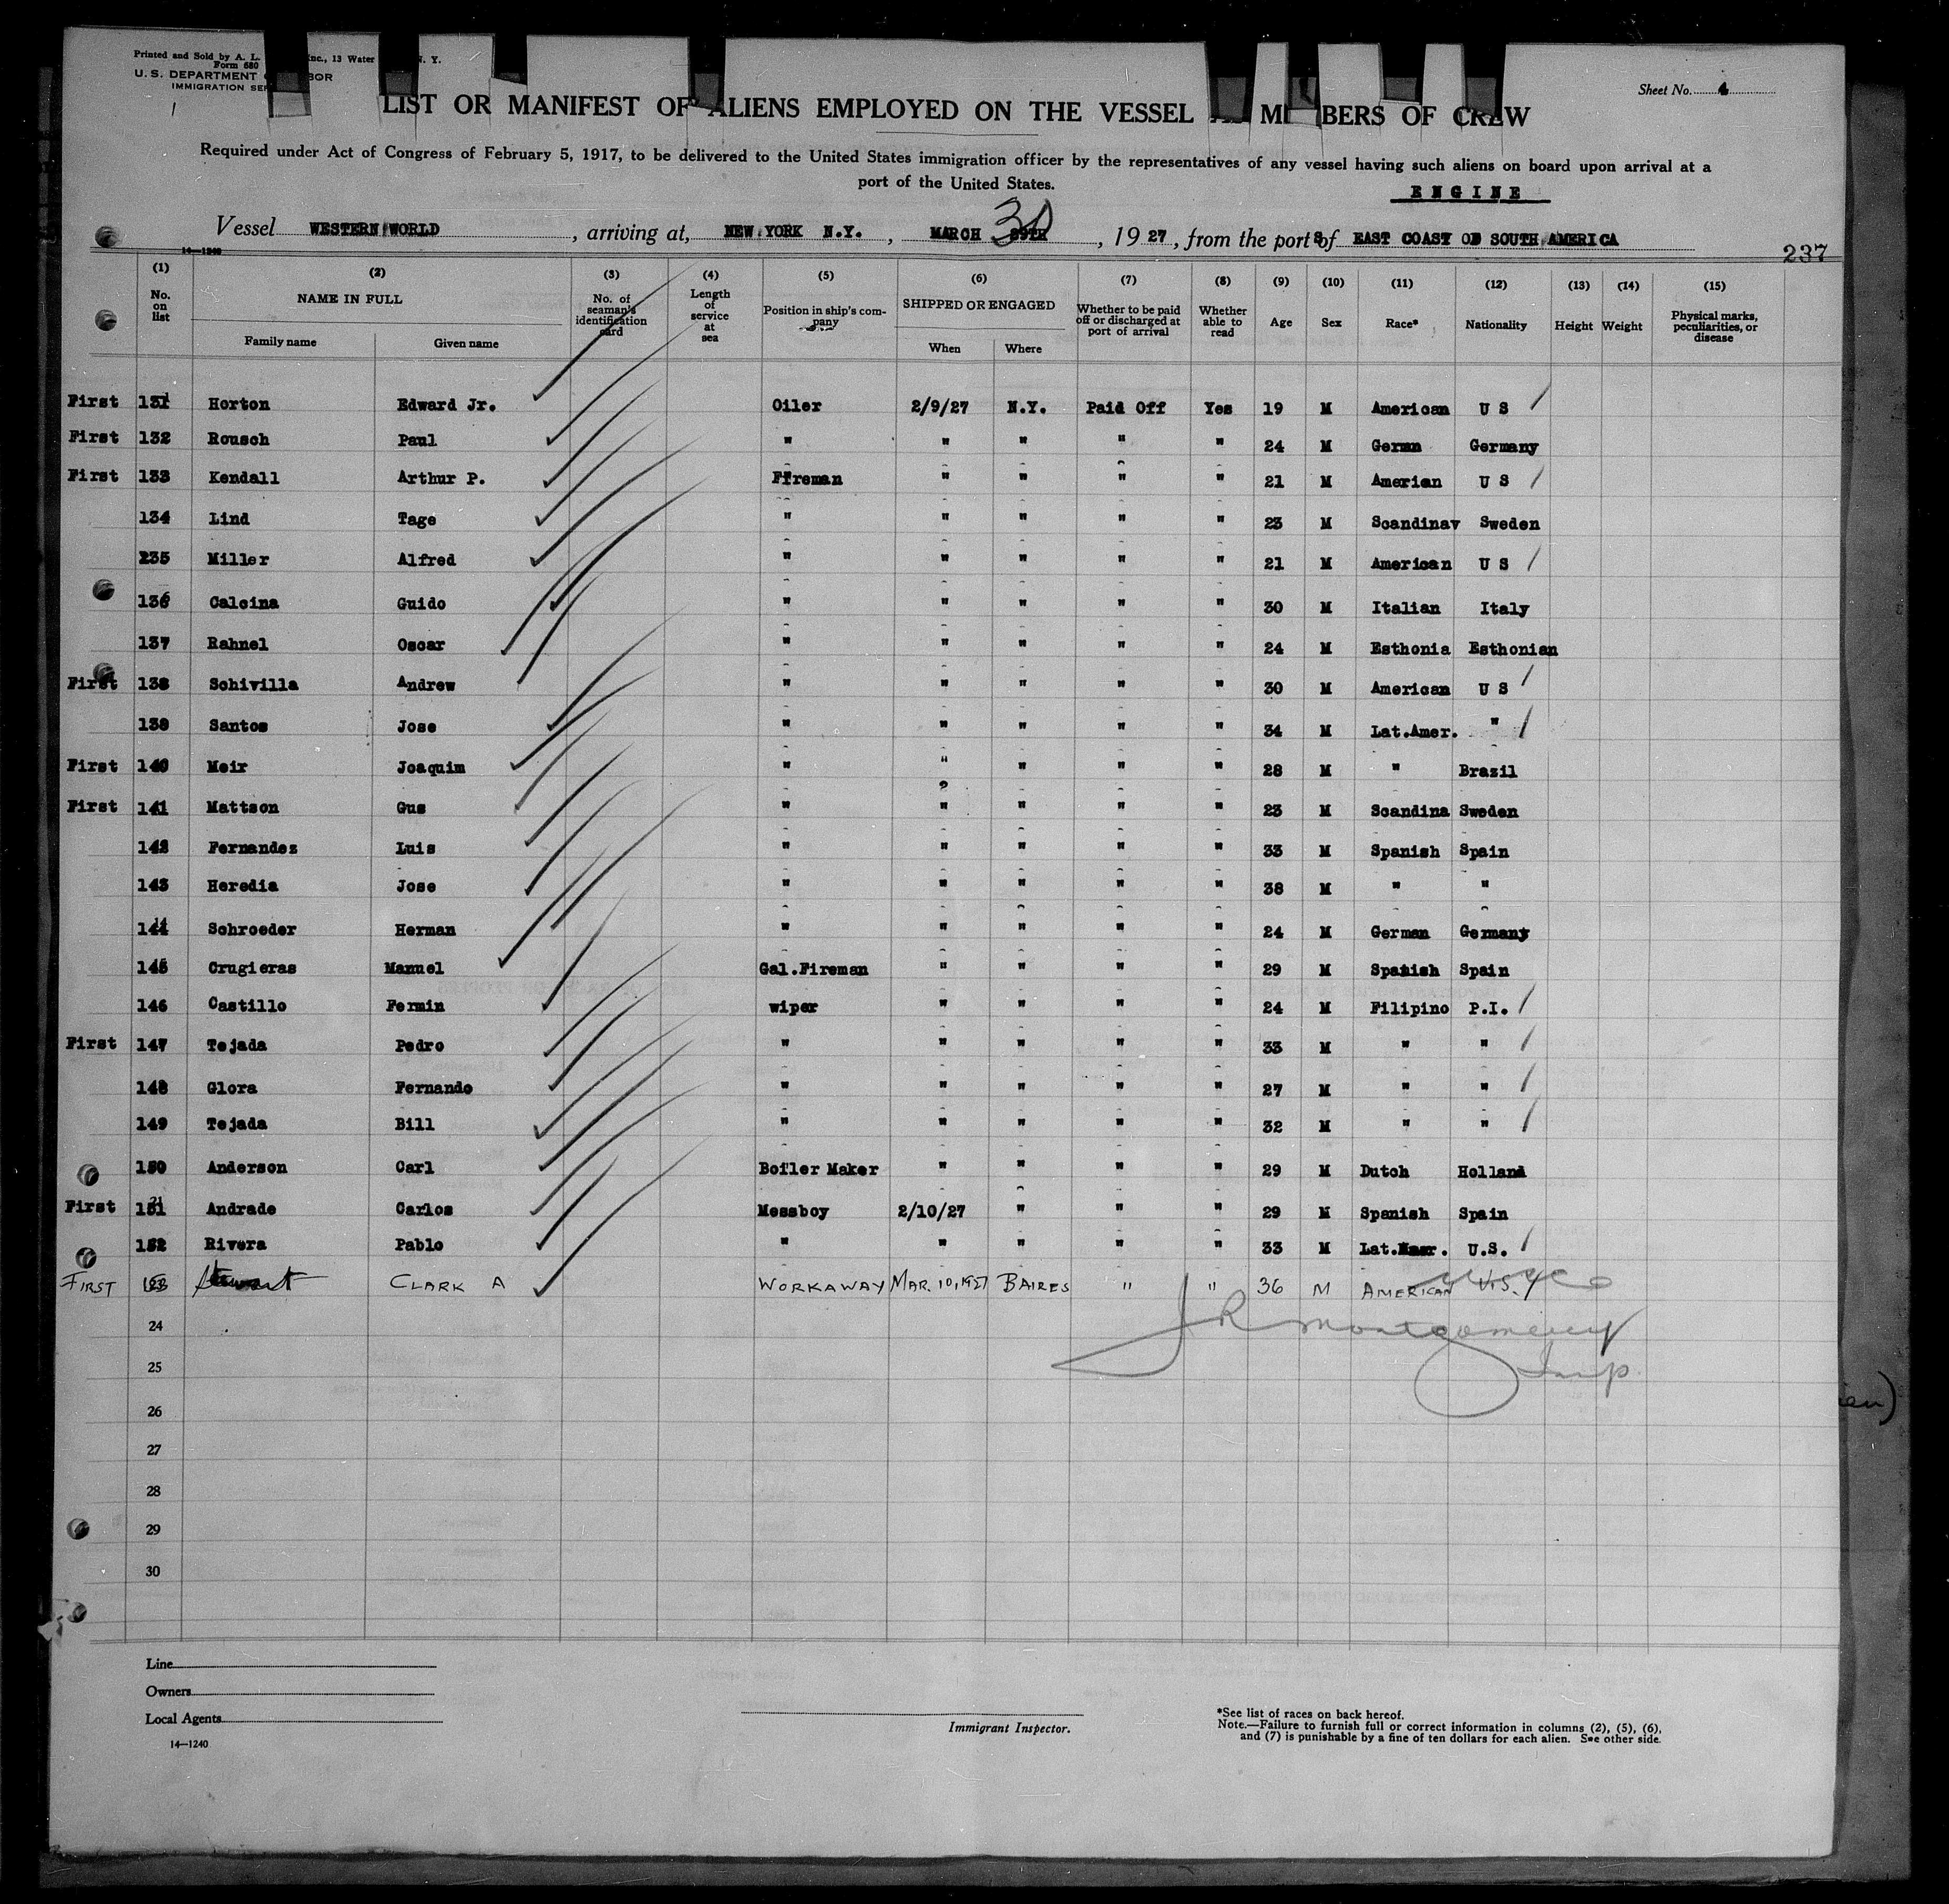 Printed and Sold by A. L. Inc., 13 Water N. Y.
Form 680
U. S. DEPARTMENT BOR
IMMIGRATION SER
Sheet No. 4
LIST OR MANIFEST OF ALIENS EMPLOYED ON THE VESSEL AS MEMBERS OF CREW
Required under Act of Congress of February 5, 1917, to be delivered to the United States immigration officer by the representatives of any vessel having such aliens on board upon arrival at a
port of the United States.
ENGINE
Vessel WESTERN WORLD , arriving at, NEW YORK N.Y. , MARCH 30 29TH , 19 27 , from the portS of EAST COAST OF SOUTH AMERICA
14—1240
237
(1) No. on list (2) NAME IN FULL Family name Given name (3) No. of seaman's identification card (4) Length of service at sea (5) Position in ship's company (6) SHIPPED OR ENGAGED When Where (7) Whether to be paid off or discharged at port of arrival (8) Whether able to read (9) Age (10) Sex (11) Race* (12) Nationality (13) Height (14) Weight (15) Physical marks, peculiarities, or disease
First 131 Horton Edward Jr. Oiler 2/9/27 N.Y. Paid Off Yes 19 M American U S
First 132 Rousch Paul " " " " " 24 M Germn Germany
First 133 Kendall Arthur P. Ffreman " " " " 21 M Amerian U S
134 Lind Tage " " " " " 23 M Scandinav Sweden
235 Miller Alfred " " " " " 21 M American U S
136 Calcina Guido " " " " " 30 M Italian Italy
137 Rahnel Oscar " " " " " 24 M Esthonia Esthonian
First 138 Schivilla Andrew " " " " " 30 M American U S
139 Santos Jose " " " " " 34 M Lat.Amer. "
First 140 Meir Joaquim " " " " " 28 M " Brazil
First 141 Mattson Gus " " " " " 23 M Scandina Sweden
142 Fernandez Luis " " " " " 33 M Spanish Spain
143 Heredia Jose " " " " " 38 M " "
144 Schroeder Herman " " " " " 24 M German Germany
145 Crugieras Manuel Gal.Fireman " " " " 29 M Spanish Spain
146 Castillo Fermin wiper " " " " 24 M Filipino P.I.
First 147 Tejada Pedro " " " " " 33 M " "
148 Glora Fernando " " " " " 27 M " "
149 Tejada Bill " " " " " 32 M " "
150 Anderson Carl Boiler Maker " " " " 29 M Dutch Holland
First 151 Andrade Carlos Messboy 2/10/27 " " " 29 M Spanish Spain
152 Rivera Pablo " " " " " 33 M Lat.Amer. U.S.
FIRST 153 Stewart CLARK A WORKAWAY MAR. 10, 1927 BAIRES " " 36 M AMERICAN U.S.
24
J R Montgomery
25
Insp.
26
27
28
29
30
Line
Owners
Local Agents
14—1240
Immigrant Inspector.
*See list of races on back hereof.
Note.—Failure to furnish full or correct information in columns (2), (5), (6),
and (7) is punishable by a fine of ten dollars for each alien. See other side.